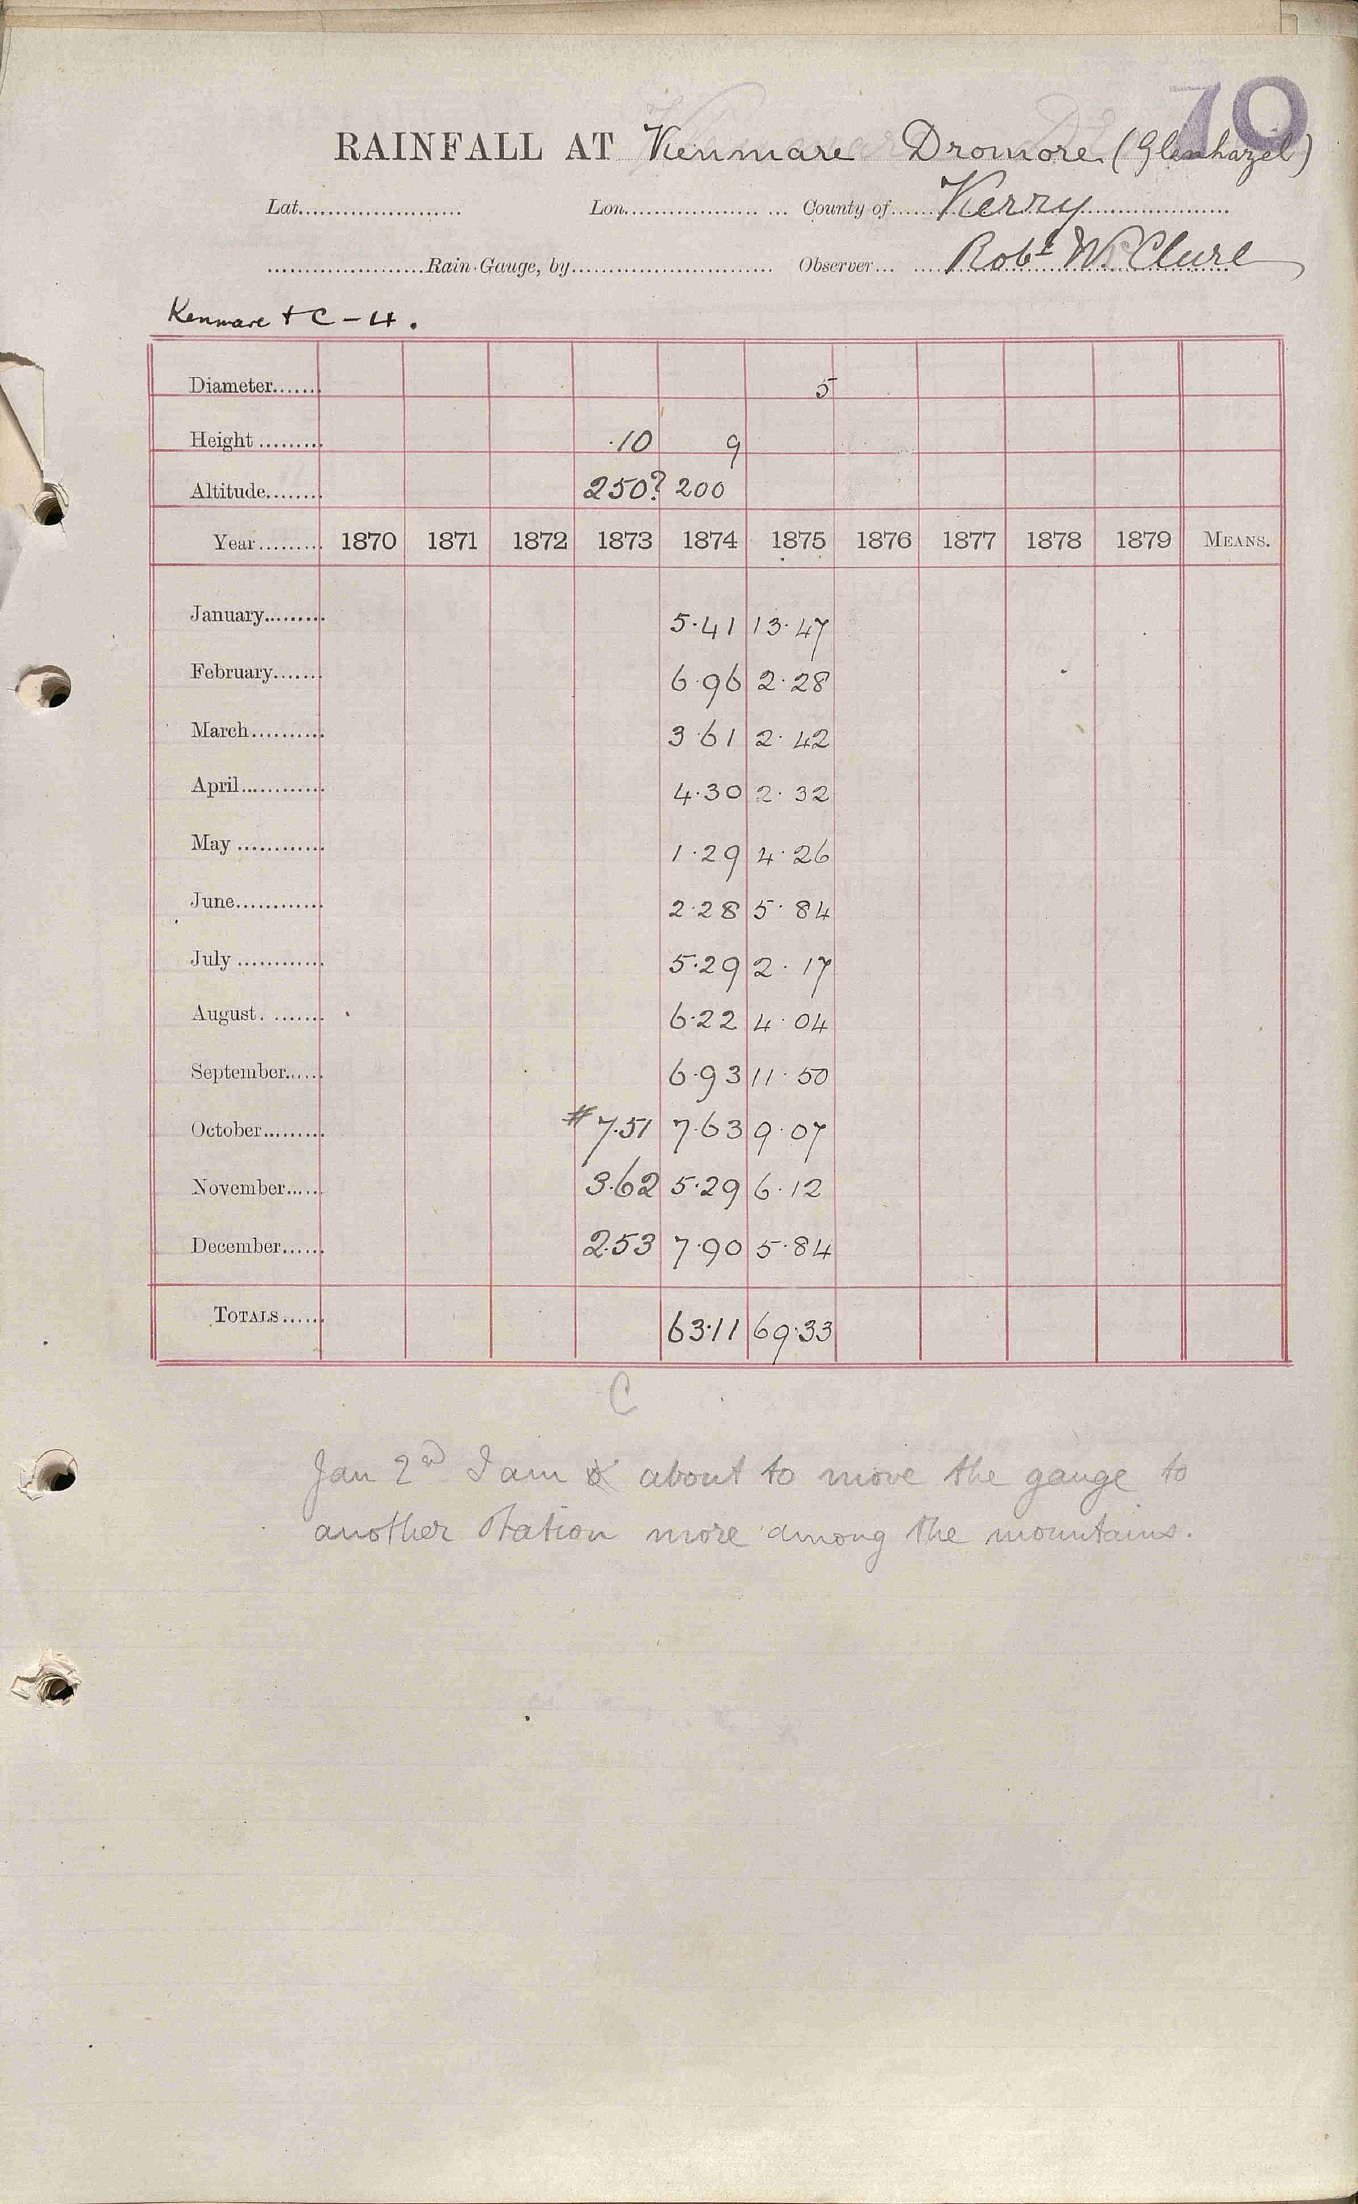 70
RAINFALL AT Kenmare Dromore (Glenhazel)
Lat...................... Lon..................... County of......Kerry......
......................Rain-Gauge, by............................ Observer... Robt McClure
Kenmare + C - 4.
Diameter....... 5
Height ......... .10 9
Altitude........ 250? 200
Year......... 1870 1871 1872 1873 1874 1875 1876 1877 1878 1879 MEANS.
January......... 5.41 13.47
February....... 6.96 2.28
March.......... 3 61 2.42
April............ 4.30 2.32
May ............ 1.29 4.26
June............ 2.28 5.84
July ............ 5.29 2.17
August. ....... 6.22 4.04
September...... 6.93 11.50
October......... #7.51 7.63 9.07
November...... 3.62 5.29 6.12
December...... 2.53 7.90 5.84
TOTALS...... 63.11 69.33
C
Jan 2nd I am about to move the gauge to
another station more among the mountains.